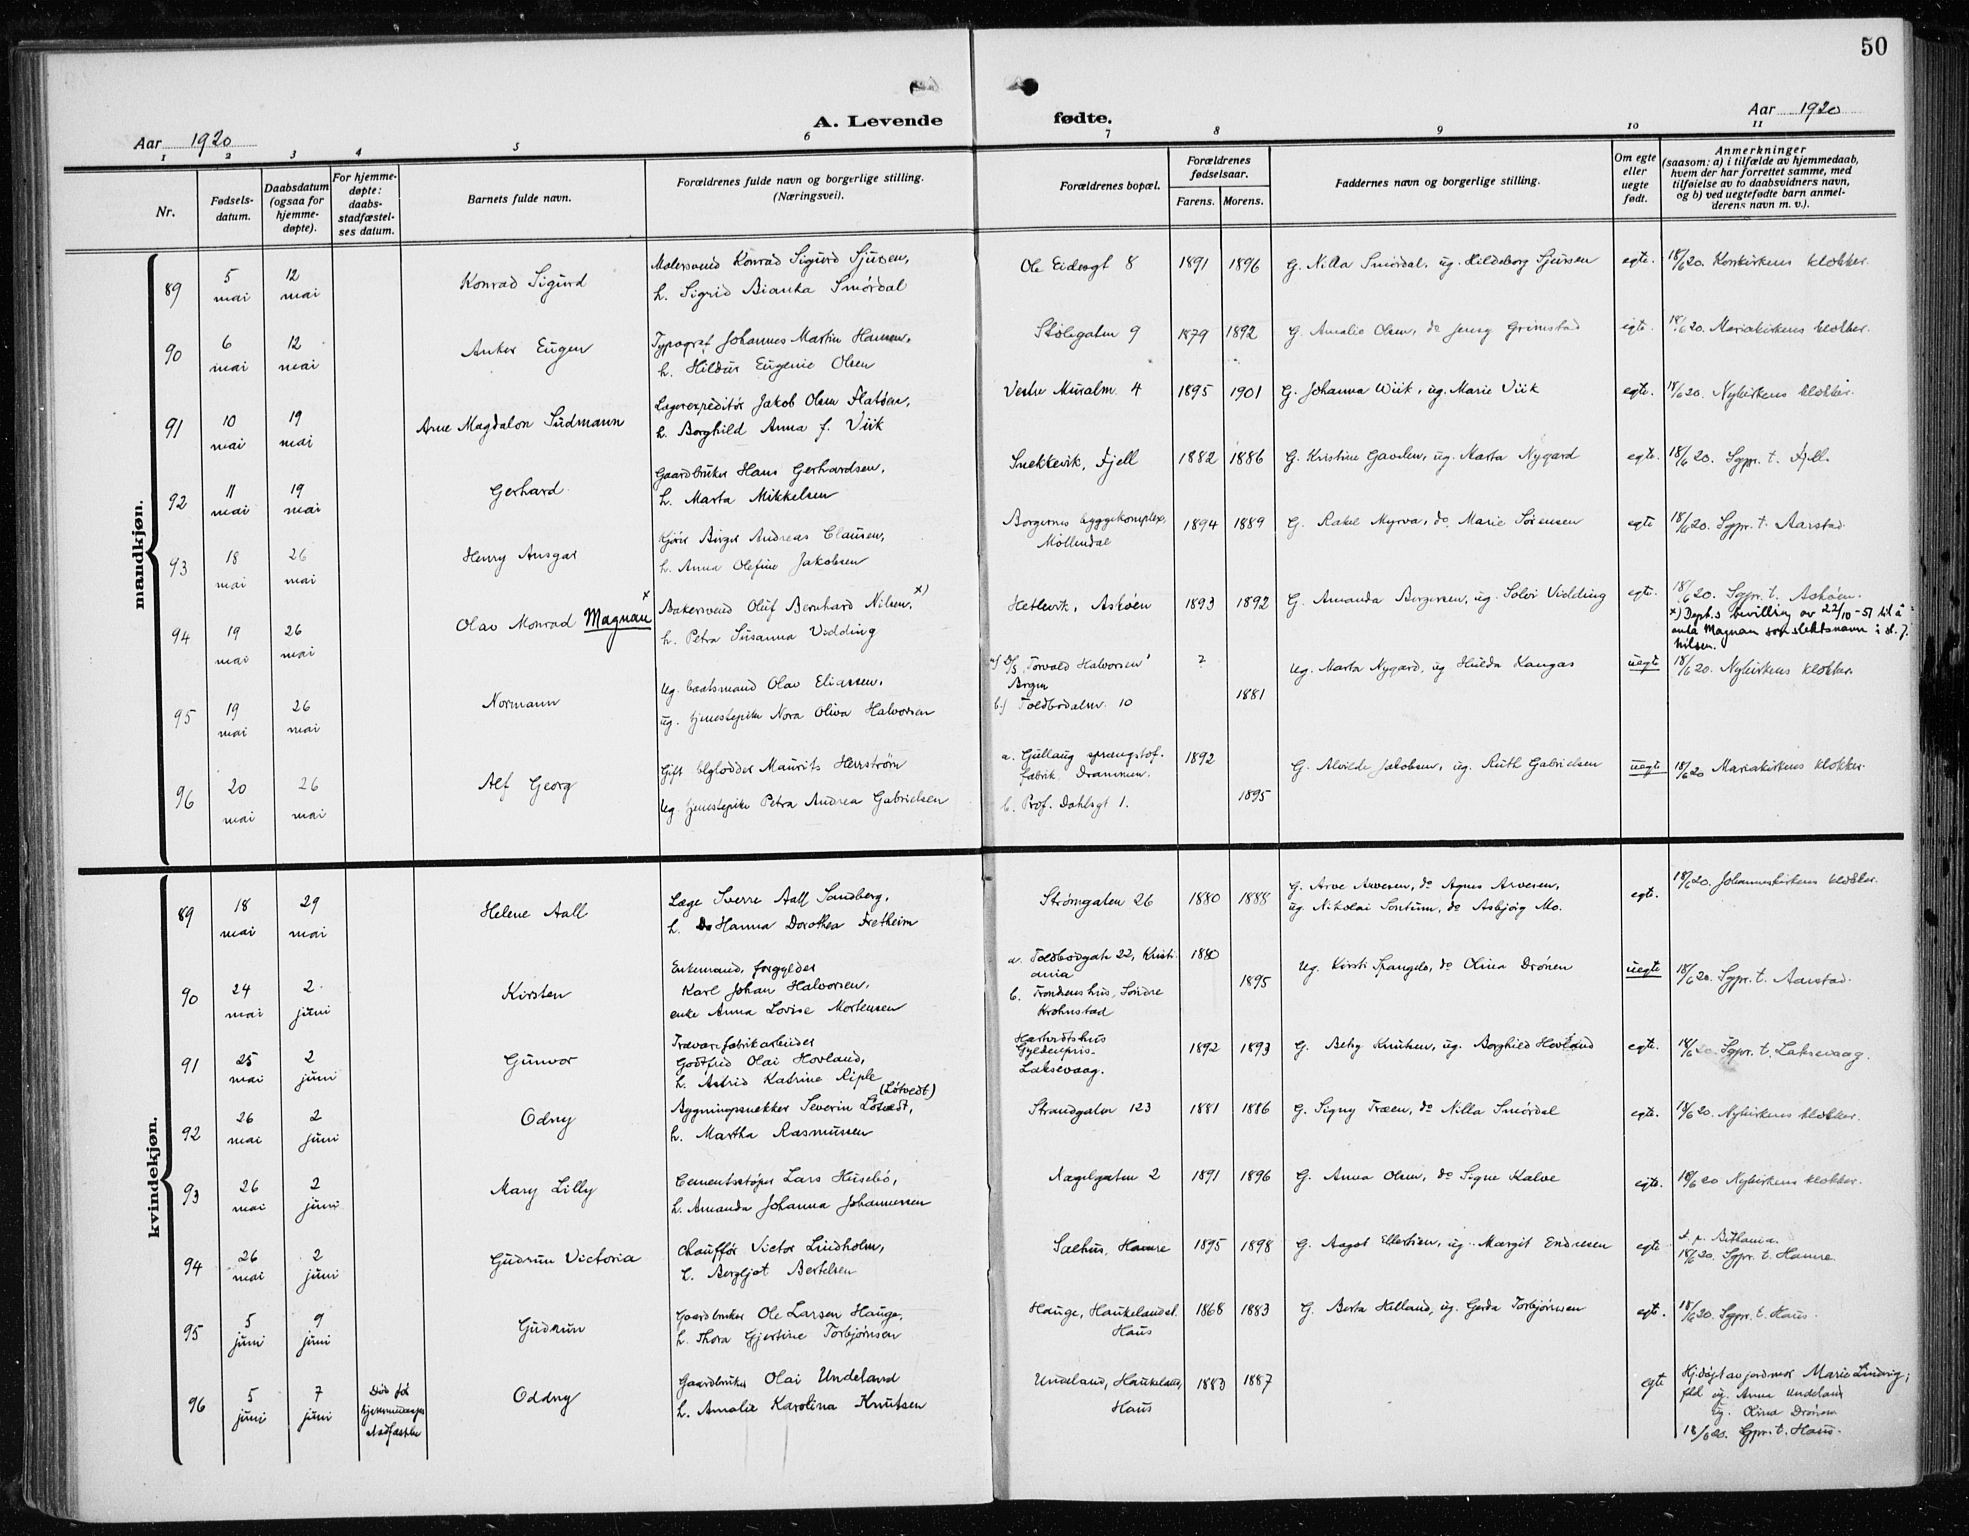 50
A. Levende fødte.
Aar 1920
Aar 1920
1 2 3 4 5 6 7 8 9 10 11
Nr.
Fødsels-
datum.
Daabsdatum
(ogsaa for
hjemme-
døpte).
For hjemme-
døpte:
daabs-
stadfæstel-
ses datum.
Barnets fulde navn.
Forældrenes fulde navn og borgerlige stilling.
(Næringsvei).
Forældrenes bopæl.
Forældrenes
fødselsaar.
Farens. Morens.
Faddernes navn og borgerlige stilling.
Om egte
eller
uegte
født.
Anmerkninger
(saasom: a) i tilfælde av hjemmedaab,
hvem der har forrettet samme, med
tilføielse av to daabsvidners navn,
og b) ved uegtefødte barn anmel-
derens navn m. v.).
mandkjøn.
89 5 mai 12 mai Konrad Sigurd
Malersvend Konrad Sigurd Sjursen,
h. Sigrid Bianka Smørdal
Ole Eidesgt 8 1891 1896 G. Nilla Smørdal, ug. Hildeborg Sjursen egte. 18/6 20. Korskirkens klokker.
90 6 mai 12 mai Anker Eugen
Typograf Johannes Martin Hansen,
h. Hildur Eugenie Olsen
Stølegaten 9 1879 1892 G. Amalie Olsen, do Jenny Grimstad egte. 18/6 20. Mariakirkens klokker.
91 10 mai 19 mai Arne Magdalon Sudmann
Lagerexpeditør Jakob Olsen Flatøen,
h. Borghild Anna f. Viik
Vestre Muralm. 4 1895 1901 G. Johanna Wiik, ug. Marie Viik egte. 18/6 20. Nykirkens klokker.
92 11 mai 19 mai Gerhard
Gaardbruker Hans Gerhardsen,
h. Marta Mikkelsen
Snekkevik, Fjell 1882 1886 G. Kristine Gavlen, ug. Marta Nygard egte. 18/6 20. Sgpr. t. Fjell.
93 18 mai 26 mai Henry Ansgar
Kjører Birger Andreas Clausen,
h. Anna Olefine Jakobsen
Borgernes byggekomplex,
Møllendal
1894 1889 G. Rakel Myrva, do Marie Sørensen egte 18/6 20. Sgpr. t. Aarstad.
94 19 mai 26 mai Olav Monrad Magnau x
Bakersvend Oluf Bernhard Nilsen, x)
h. Petra Susanna Vidding
Hetlevik, Askøen 1893 1892 G. Amanda Borgersen, ug. Solvi Vidding egte. 18/6 20. Sgpr. t. Askøen.
x) Dept.s bevilling av 22/10-51 til å
anta Magnau som slektsnavn i st. f.
Nilsen.
95 19 mai 26 mai Normann
Ug. baatsmand Olav Eliassen,
ug. tjenestepike Nora Oliva Halvorsen
a) D/S "Torvald Halvorsen"
Bergen
b) Toldbodalm. 10
? 1881 Ug. Marta Nygard, ug Hulda Kangas uegte 18/6 20. Nykirkens klokker.
96 20 mai 26 mai Alf Georg
Gift Maurits Herrstrøm
Ug tjenestepike Petra Andrea Gabrielsen
a. Gullaug sprængstof-
fabrik. Drammen.
b. Prof. Dahlsgt 1.
1892 1895 G. Alvilde Jakobsen, ug. Ruth Gabrielsen uegte 18/6 20 Mariakirkens klokker.
kvindekjøn.
89 18 mai 29 mai Helene Aall
Læge Sverre Aall Sandberg,
h. Hanna Dorothea Fretheim
Strømgaten 26 1880 1888 G. Arve Arvesen, do Agnes Arvesen,
ug. Nikolai Sontum, do Asbjørg Mo.
egte. 18/6 20. Johanneskirkens klokker.
90 24 mai 2 juni Kirsten
Enkemand, forgylder
Karl Johan Halvorsen,
enke Anna Lovise Mortensen
a. Toldbodgate 22, Kristi-
ania
b. Trondeneshus, Søndre
Krohnstad
1880 1895 Ug. Kirsti Spangelo, do Olina Drønen uegte 18/6 20. Sgpr. t. Aarstad.
91 25 mai 2 juni Gunvor
Trævarefabrikarbeider
Godtfrid Olai Hovland,
h. Astrid Katrine Riple
Hartvedtshus
Gyldenpris-
Laksevaag.
1892 1893 G. Betsy Knutsen, ug. Borghild Hovland egte. 18/6 20. Sgpr. t. Laksevaag.
92 26 mai 2 juni Odny
(Løtvedt)
Bygningssnekker Severin Løtvedt,
h. Martha Rasmussen
Strandgaten 123 1881 1886 G. Signy Træen, do Nilla Smørdal egte. 18/6 20. Nykirkens klokker.
93 26 mai 2 juni Mary Lilly
Cementstøper Lars Husebø,
h. Amanda Johanna Johannessen
Nægelgaten 2 1891 1896 G. Anna Olsen, do Signe Kalve egte. 18/6 20 Nykirkens klokker.
94 26 mai 2 juni Gudrun Victoria
Chauffør Victor Lindholm,
h. Bergljot Bertelsen
Salhus, Hamre 1895 1898 G. Aagot Ellertsen, ug. Margit Endresen egte
18/6 20. Sgpr. t. Hamre.
95 5 juni 9 juni Gudrun
Gaardbruker Ole Larsen Hauge,
h. Thora Gjertine Torbjørnsen
Hauge, Haukeland.
Haus
1868 1883 G. Berta Helland, ug. Gerda Torbjørnsen egte. 18/6 20. Sgpr. t. Haus.
96 5 juni 7 juni Død før
hjemmedaaps
stadfæstelse
Oddny
Gaardbruker Olai Undeland
h. Amalie Karolina Knutsen
Undeland, Haukeland,
Haus
1883 1887 egte Hj. døpt av jordmor Marie Lindvig;
ug. Anna Undeland
ug. Olina Drønen
18/6 20. Sgpr. t. Haus.